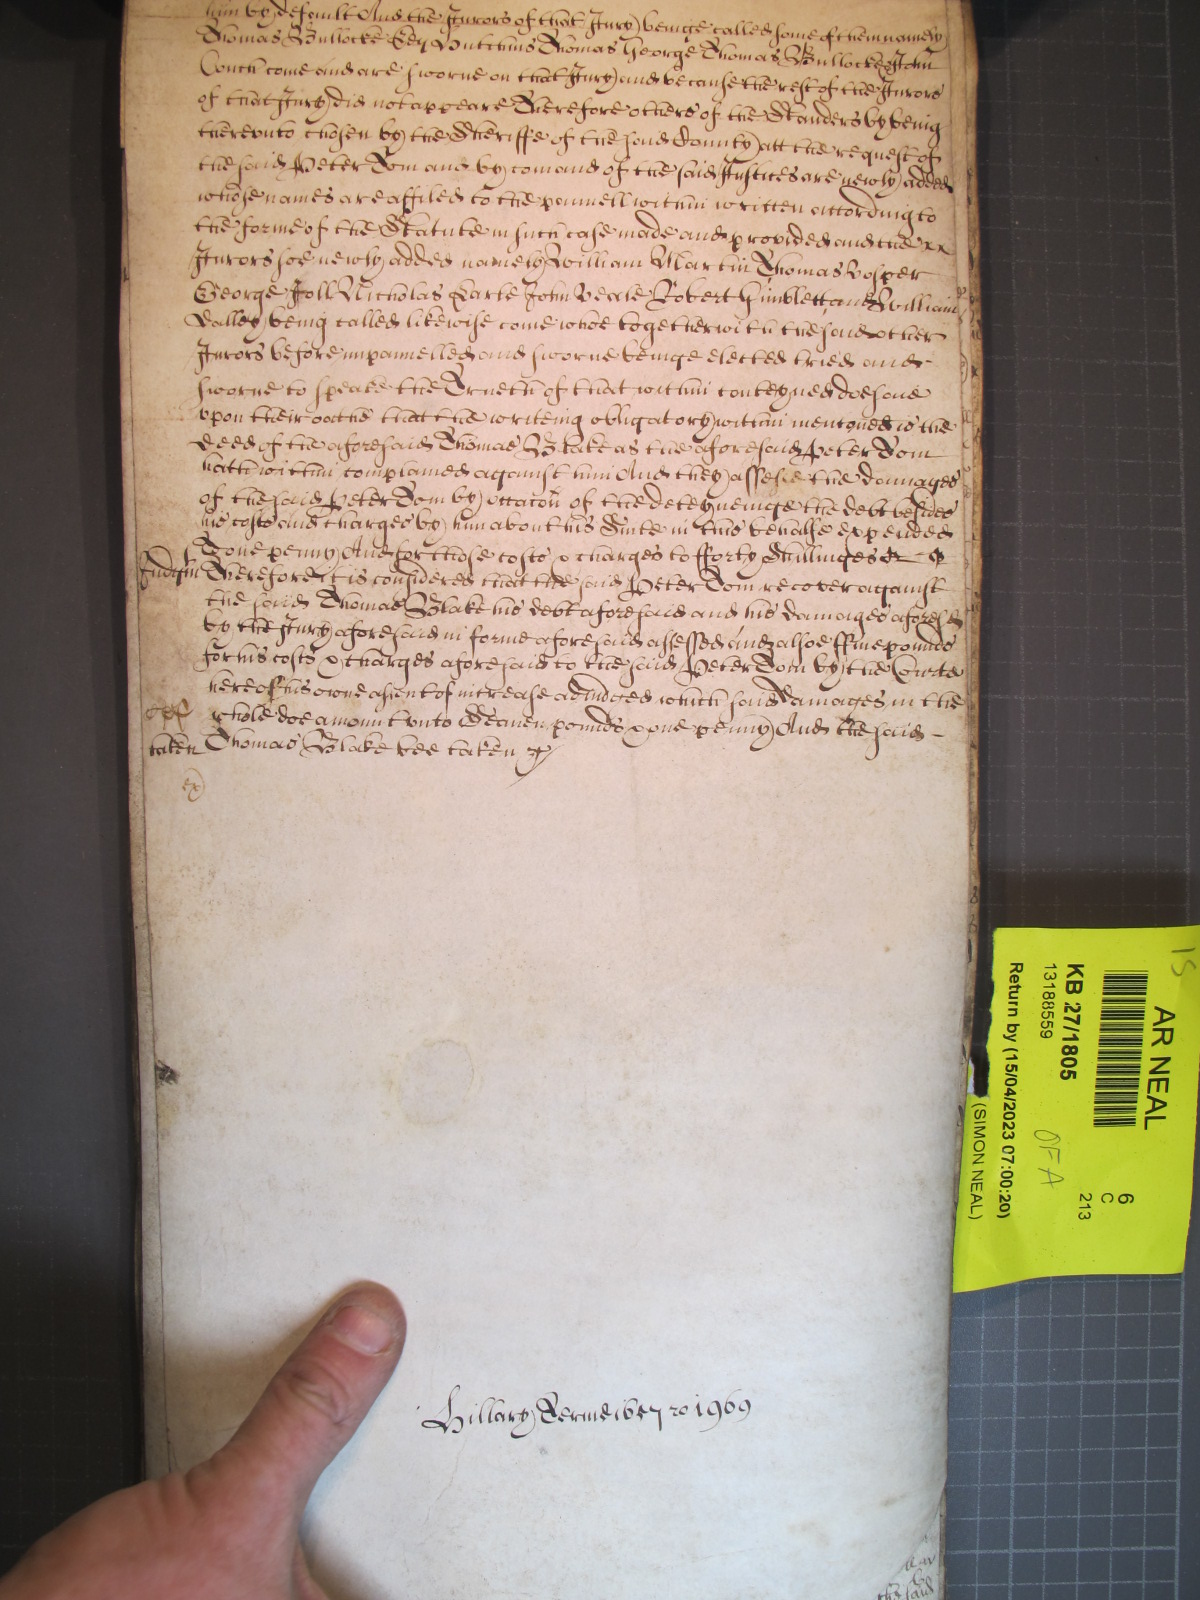 him by default And the Jurors of that Jury beinge called some of them namely
Thomas Bullocke Hutchins Thomas George Thomas Bullocke John
Couch come and are sworne on that Jury and because the rest of the Jurors
of that Jury did not appeare Therefore others of the Standers by being
thereunto chosen by the Sheriffe of the said County att the request of
the said Peter Tom and by comand of the said Justices are newly added
whose names are affiled to the pannell within written according to
the forme of the Statute in such case made and provided and the
Jurors soe newly added namely William Martin Thomas Vosper
George Joll Nicholas Earle John Veale Robert Himblett and William
Dalley being called likewise come whoe together with the said other
Jurors before impannelled and sworne beinge elected tried and
sworne to speake the Trueth of that within conteyned doe saie
upon their oathe that the writeing obligatory within menconed is the
deed of the aforesaid Thomas Blake as the aforesaid Peter Tom
hath within complained against him And they assesse the damages
of the said Peter Tom by occacon of the deteyneinge the debt besides
his costs and charges by him about his Suite in this behalfe expended
to one penny And for those costs & charges to fforty Shillinges
Judgmt Therefore it is considered that the said Peter Tom recover against
the said Thomas Blake his debt aforesaid and his damages aforesd
by the Jury aforesaid in forme aforesaid assessed and alsoe ffive pounds
for his costs & charges aforesaid to the said Peter Tom by the Courte
here of his owne assent of increase adjudged which said damages in the
whole doe amount unto Seaven pounds & one penny And the said
taken Thomas Blake bee taken &c
ex
Hillary Terme 1657 ro 1969
the said
AR NEAL
KB 27/1805
13188559
Return by (15/04/2023 07:00:20)
(SIMON NEAL)
6
C
213
OF A
15